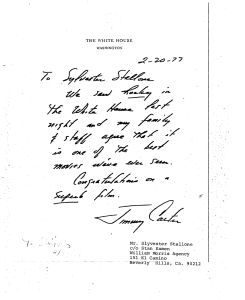 THE WHITE HOUSE
WASHINGTON
2-20-77
To Sylvester Stallone
We saw Rocky in
the White House last
night and my family
& staff agree that it
is one of the best
movies we've ever seen.
Congratulations on a
superb film.
Jimmy Carter
Mr. Slyvester Stallone
c/o Stan Kamen
William Morris Agency
151 El Camino
Beverly Hills, Ca. 90212